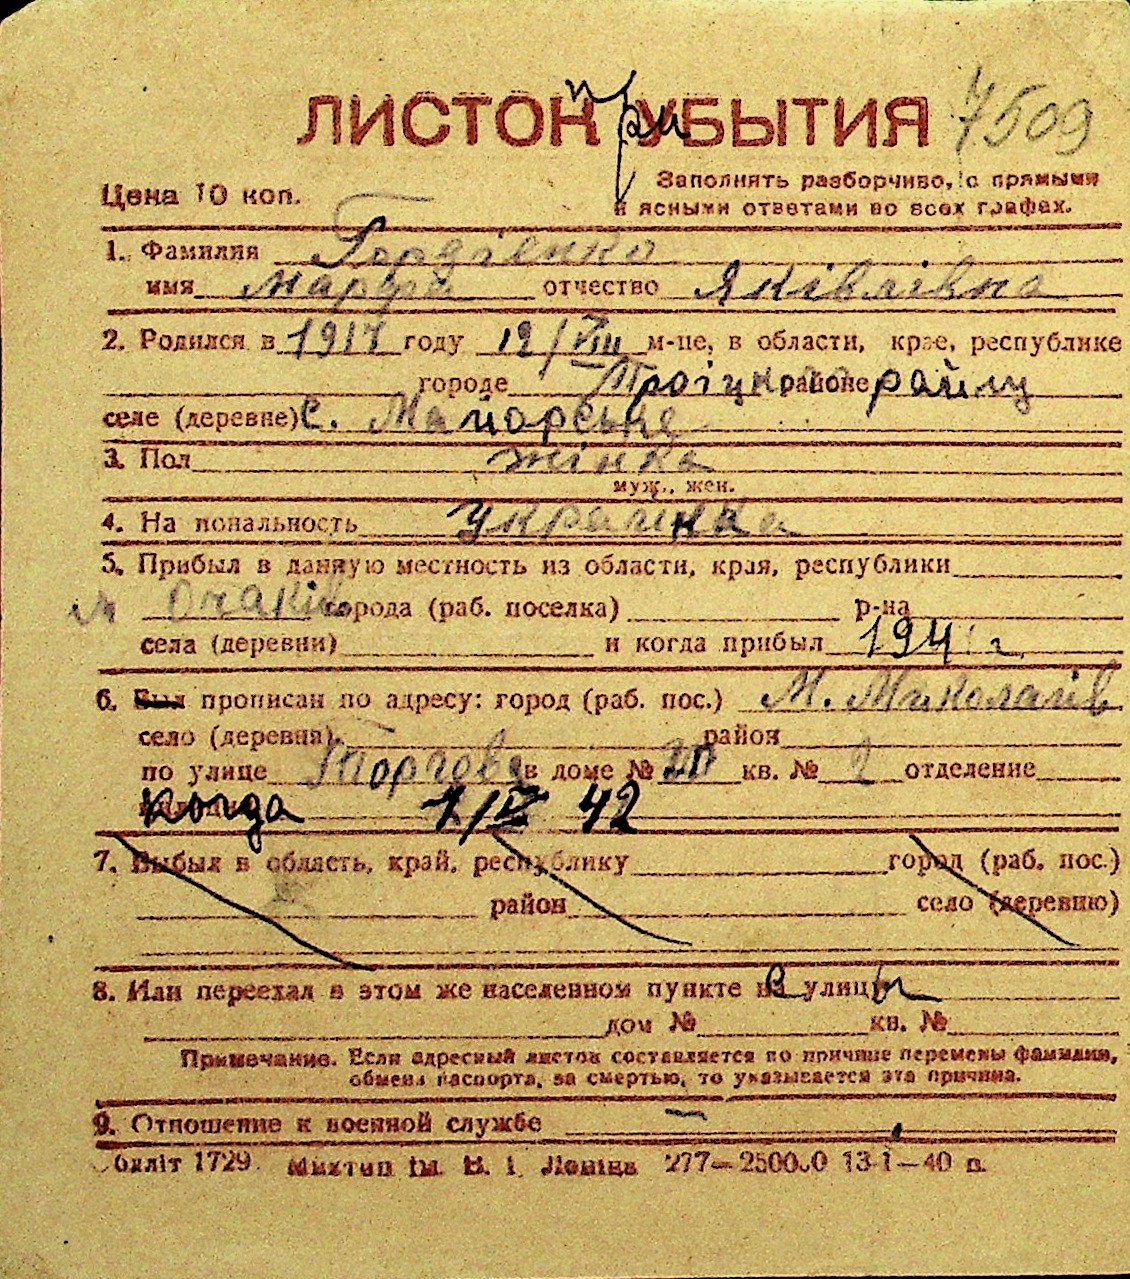 ЛИСТОК прибытия 7509
Цена 10 коп.
Заполнять разборчиво, с прямыми
и ясными ответами во всех графах.
1. Фамилия Гордієнко
имя Марфа отчество Яківлівна
2. Родился в 1917 году 12/VIII м-це, в области, крае, республике
городе Троіцкого районе райну
селе (деревне) с. Майорське
3. Пол жінка
муж., жен.
4. Национальность українка
5. Прибыл в данную местность из области, края, республики
м Очаків города (раб. поселка) р-на
села (деревни) и когда прибыл 1941 г
6. Был прописан по адресу: город (раб. пос.) М. Миколаїв
село (деревня) район
по улице Торгова в доме № 20 кв. № 2 отделение
когда 1/IV 42
7. Выбыл в область, край, республику город (раб. пос.)
район село (деревню)
8. Или переехал в этом же населенном пункте с улицы
дом № кв. №
Примечание. Если адресный листок составляется по причине перемены фамилии,
обмена паспорта, за смертью, то указывается эта причина.
9. Отношение к военной службе —
Облліт 1729. Миктип ім. В. І. Леніна 277—25000 13-I—40 р.